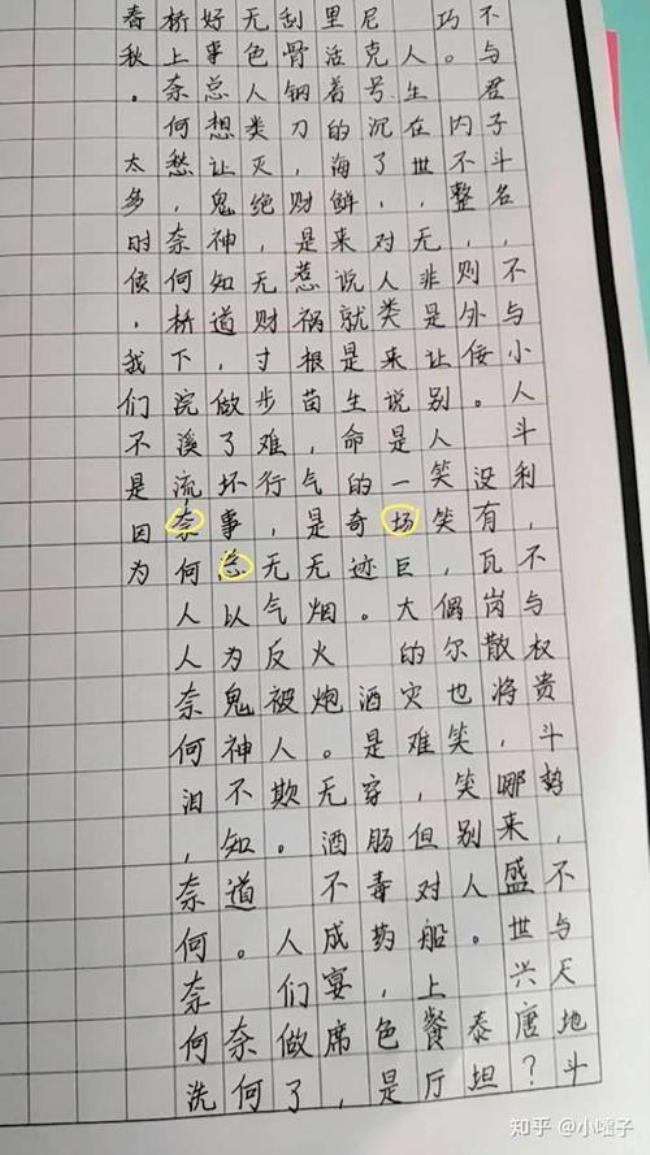 不与君子斗名,不与小人斗利,不与权贵斗势,不与天地斗
巧。内不整,则外佞。没有瓦岗散将,哪来盛世兴唐?
人生在世,无非是让别人笑笑,偶尔也笑笑别人。泰坦
尼克号沉了,对人类来说是一场巨大的灾难,但对船上餐厅
里活着的海鲜来说就是生命的奇迹。酒是穿肠毒药,色是
刮骨钢刀,财是惹祸根苗,气是无烟火炮。无酒不成宴席,
无色人类灭绝,无财寸步难行,无气反被人欺。人们做了
好事总想让鬼神知道,做了坏事总以为鬼神不知道。奈何
桥上奈何愁,奈何桥下浣溪流奈何人人奈何泪,奈何奈何洗
春秋。太多时候,我们不是因为
知乎 @小嚯子